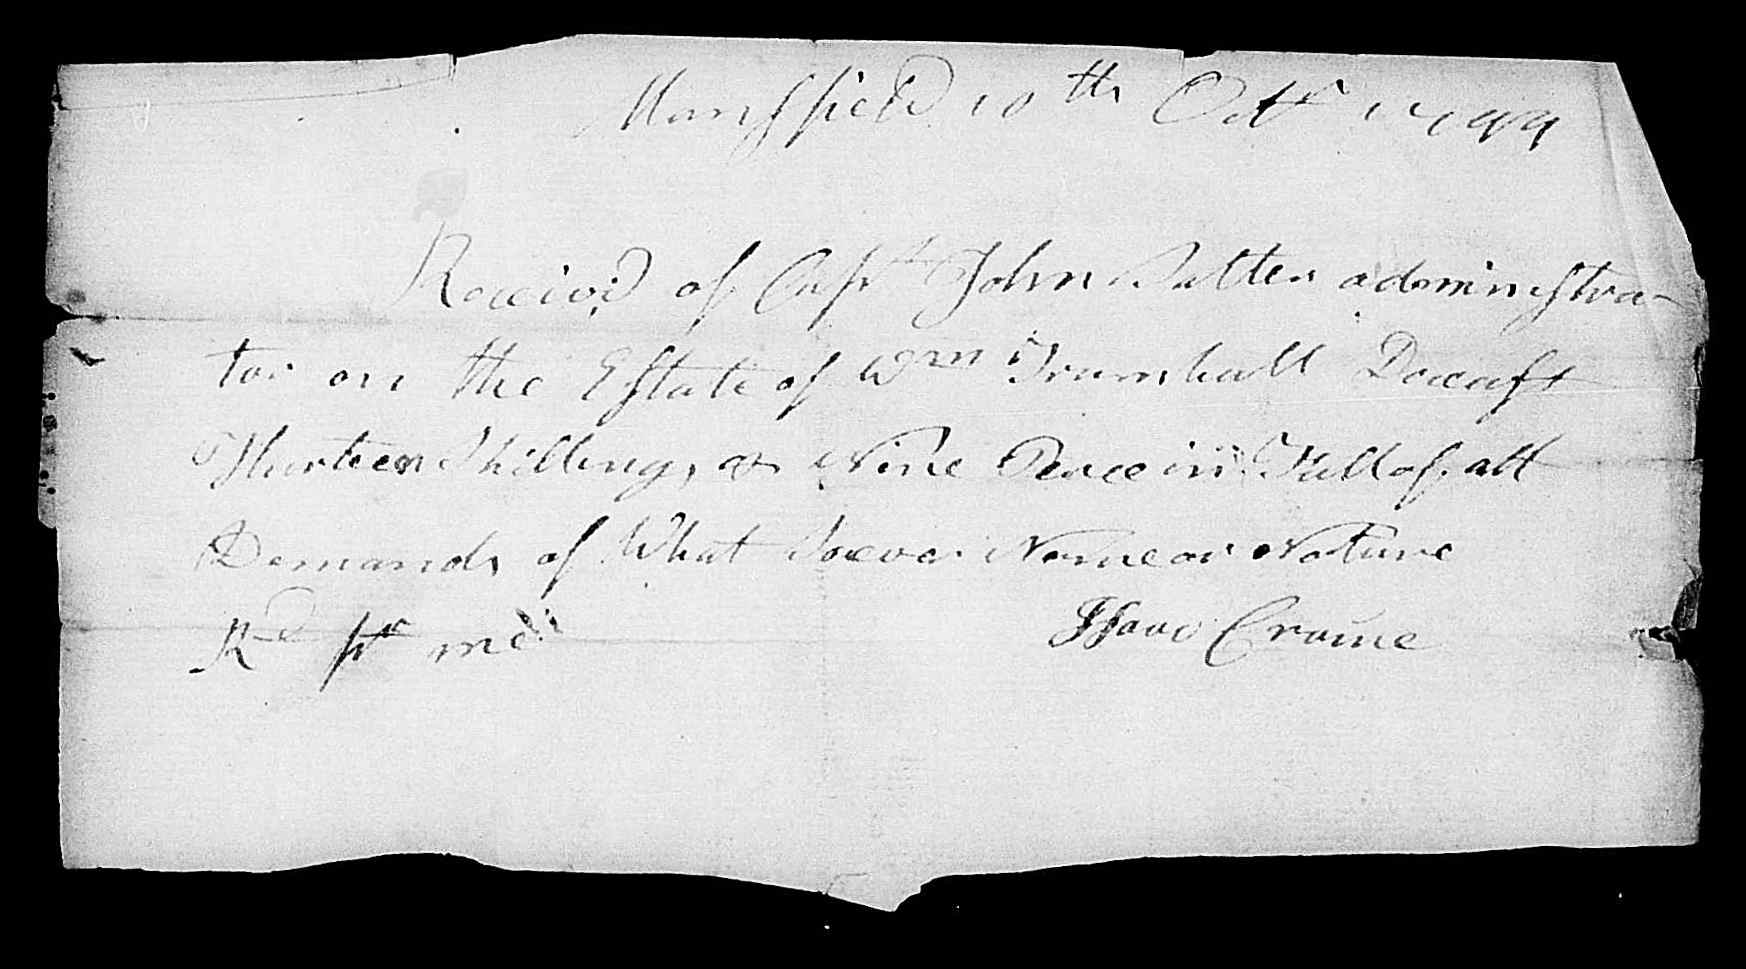 Mansfield 10th Octr 1799
Receivd of Capt John Salter administra-
tor on the Estate of Wm Trumball Deceast
Thirteen Shillings & Nine Pence in Full of all
Demands of What Soever Name or Nature
Rd pr me Isaac Craine